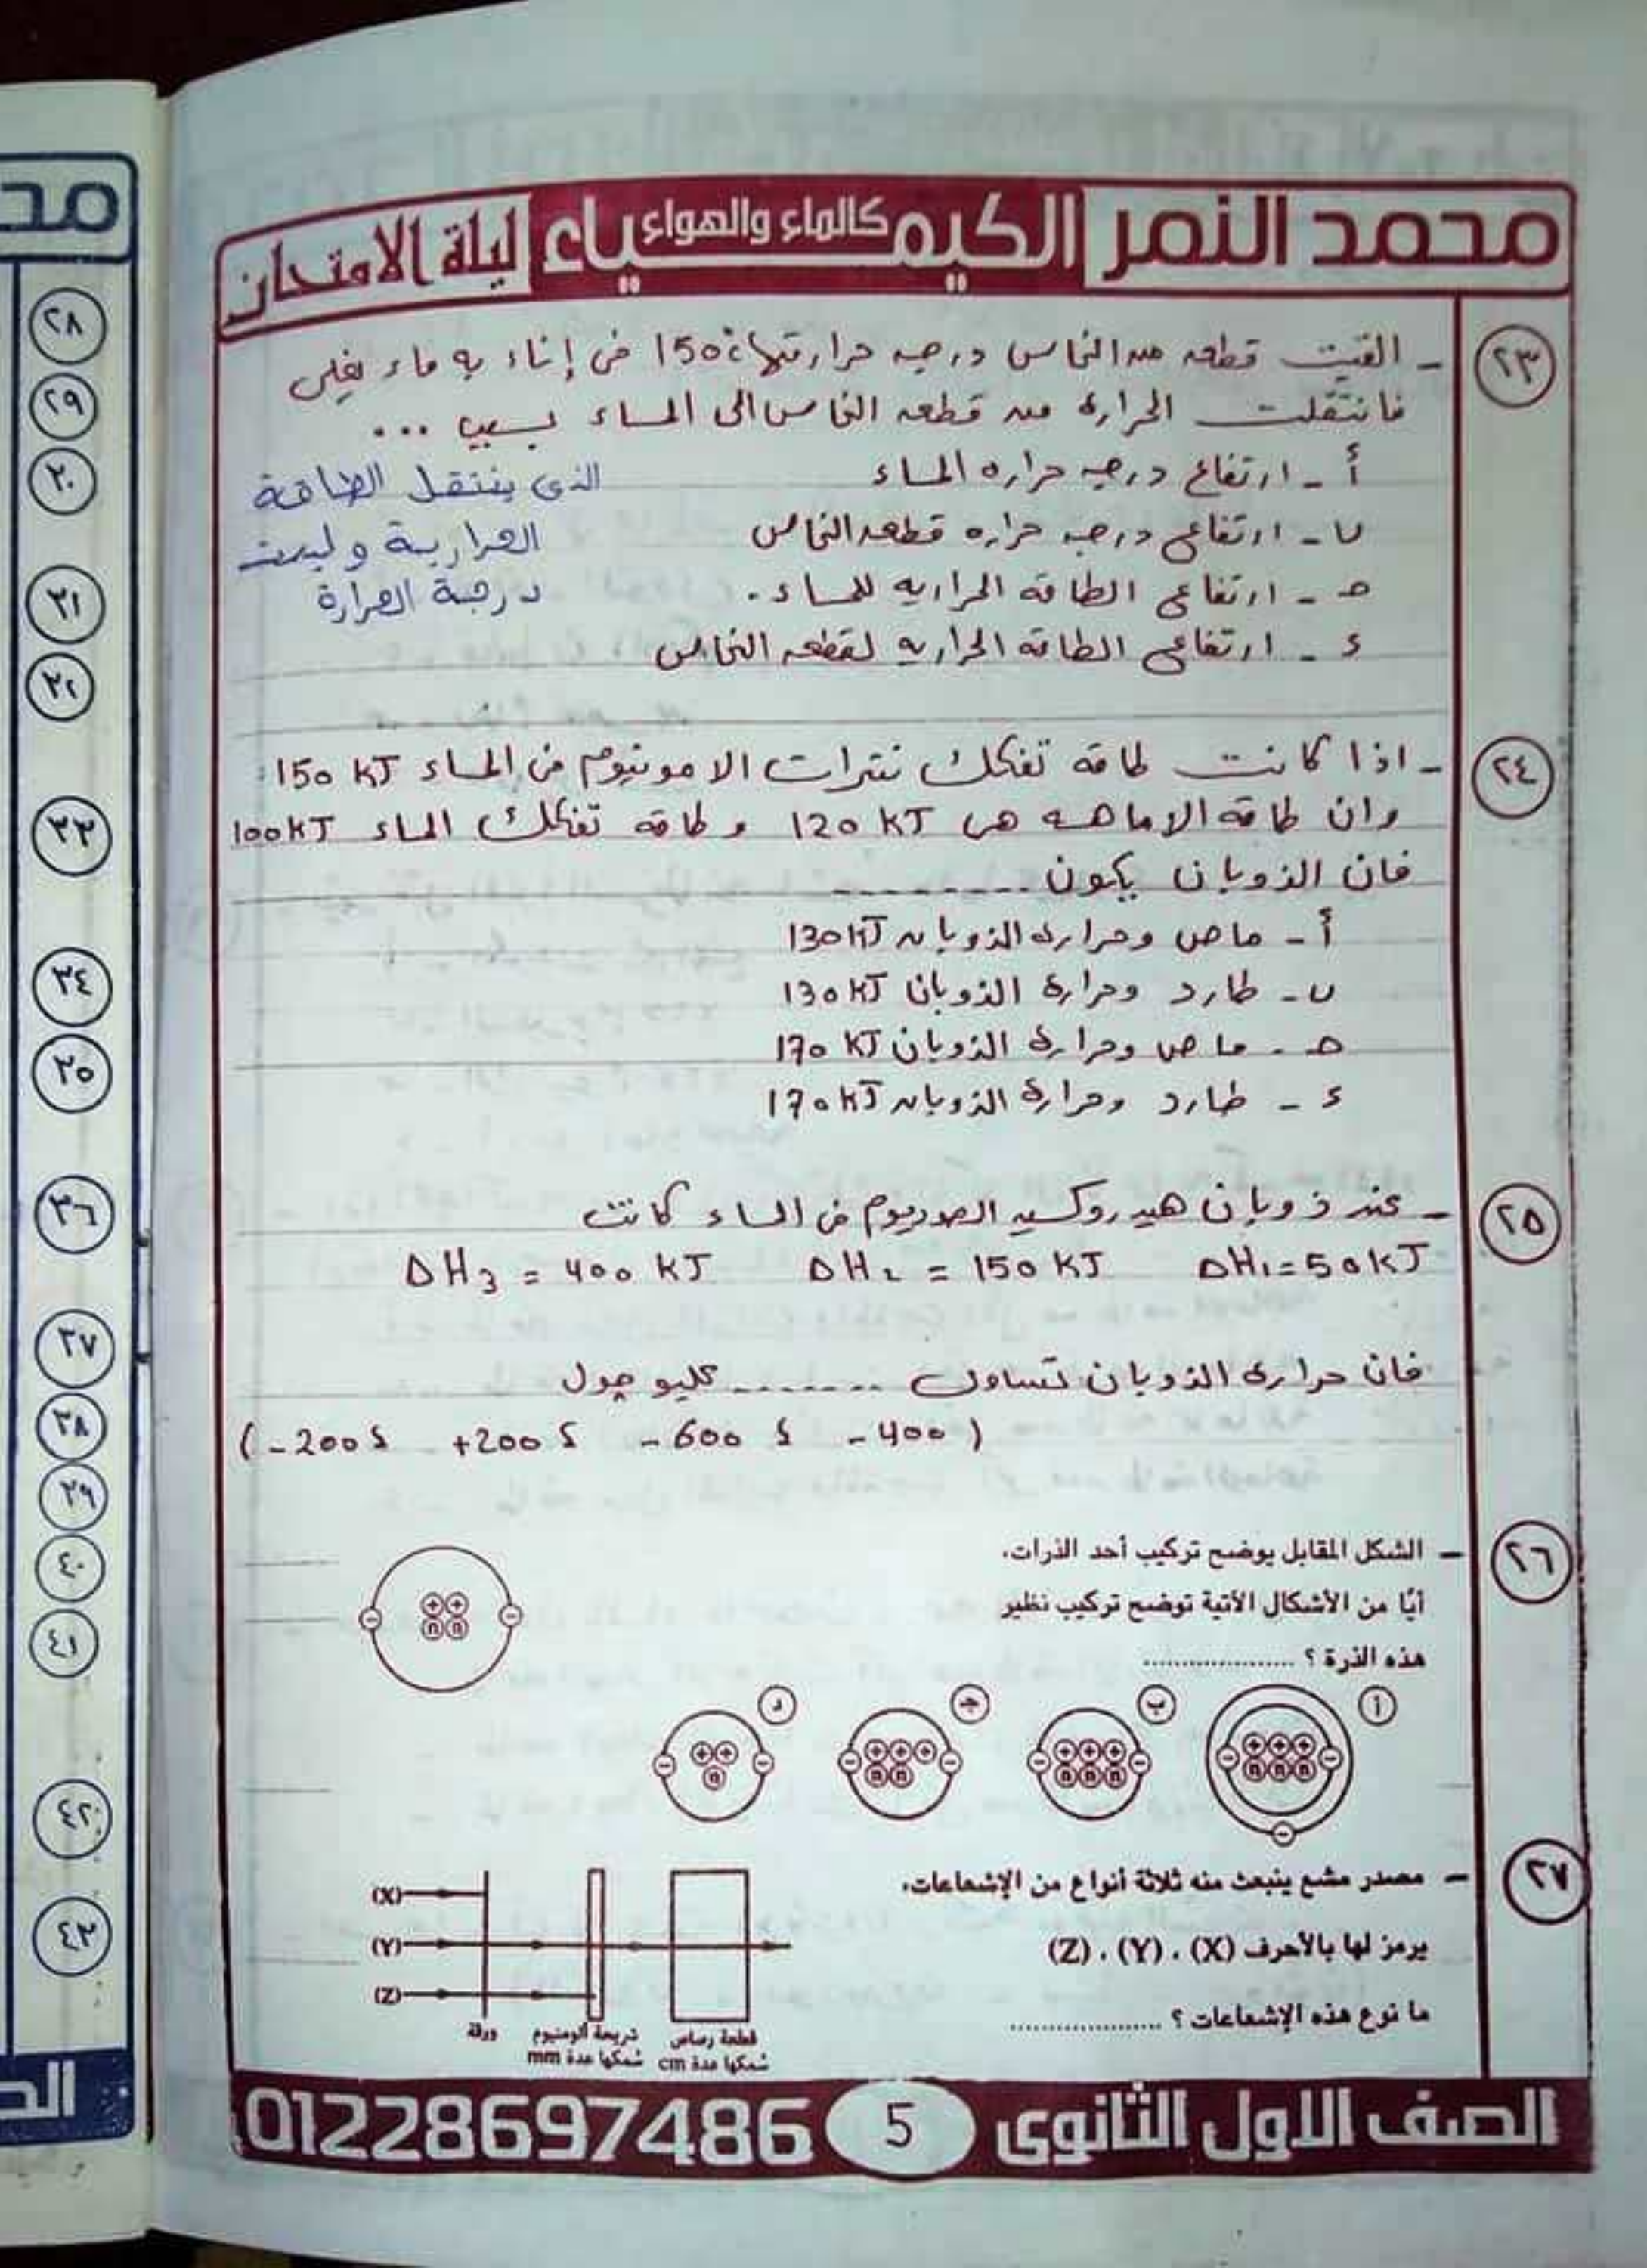 محمد النمر الكيمياء كالماء والهواء ليلة الامتحان
٢٣
- القيت قطعه من النحاس درجه حرارتها 150°c فى إناء به ماء يغلى
فانتقلت الحرارة من قطعه النحاس الى الماء بسبب ...
أ - ارتفاع درجه حراره الماء
ب - ارتفاع درجه حراره قطعه النحاس
حـ - ارتفاع الطاقه الحراريه للماء .
ء - ارتفاع الطاقه الحراريه لقطعه النحاس
الذى ينتقل الطاقة
الحرارية وليست
درجة الحرارة
٢٤
- اذا كانت طاقه تفكك نترات الامونيوم فى الماء 150 kJ
وان طاقه الاماهه هى 120 kJ و طاقه تفكك الماء 100kJ
فان الذوبان يكون --------
أ - ماص وحراره الذوبان 130kJ
ب - طارد وحرارة الذوبان 130kJ
حـ - ماص وحرارة الذوبان 170 kJ
ء - طارد وحرارة الذوبان 170kJ
٢٥
- عند ذوبان هيدروكسيد الصوديوم فى الماء كانت
ΔH₁=50kJ ΔH₂ = 150 kJ ΔH₃ = 400 kJ
فان حرارة الذوبان تساوى ------- كليو جول
( -200 ؟ +200 ؟ -600 ؟ -400 )
٢٦
– الشكل المقابل يوضح تركيب أحد الذرات.
أيًا من الأشكال الآتية توضح تركيب نظير
هذه الذرة ؟ ....................
+ +
n n
أ ب جـ د
+ + + + + + + + + + +
n n n n n n n n n
٢٧
– مصدر مشع ينبعث منه ثلاثة أنواع من الإشعاعات،
يرمز لها بالأحرف (X) ، (Y) ، (Z)
ما نوع هذه الإشعاعات ؟ ....................
(X)
(Y)
(Z)
قطعة رصاص شريحة ألومنيوم ورقة
سُمكها عدة cm سُمكها عدة mm
الصف الاول الثانوى 5 01228697486
محـ
٢٨
٢٩
٣٠
٣١
٣٢
٣٣
٣٤
٣٥
٣٦
٣٧
٣٨
٣٩
٤٠
٤١
٤٢
٤٣
الصـ